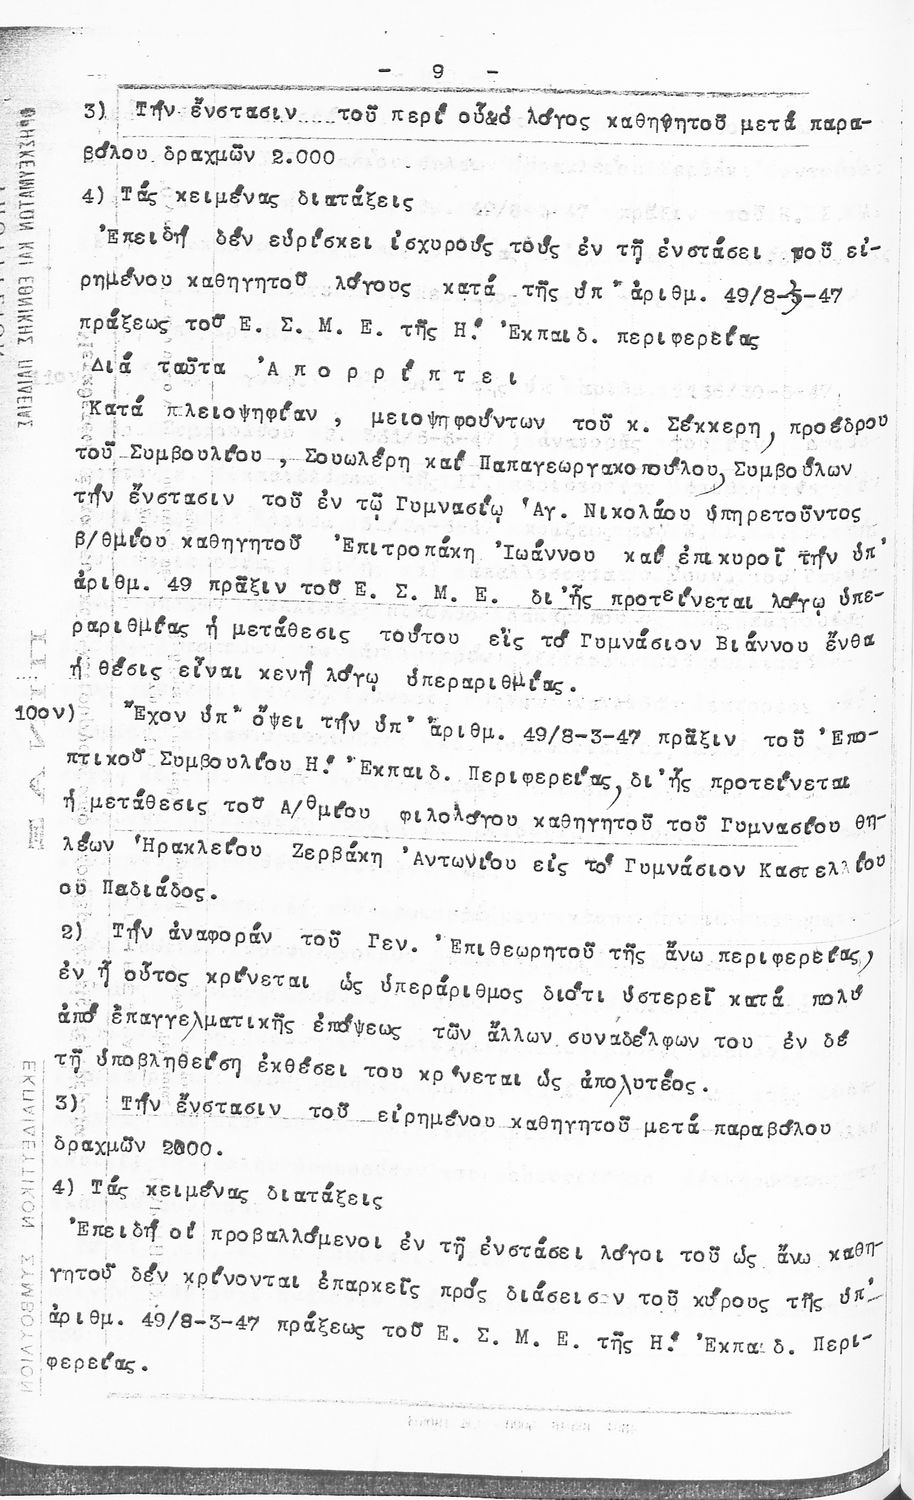 - 9 -
3) Τήν ἔνστασιν τοῦ περί οὗ ὁ λόγος καθηγητοῦ μετά παρα-
βόλου δραχμῶν 2.000
4) Τάς κειμένας διατάξεις
Ἐπειδή δέν εὑρίσκει ἰσχυρούς τούς ἐν τῇ ἐνστάσει τοῦ εἰ-
ρημένου καθηγητοῦ λόγους κατά τῆς ὑπ' ἀριθμ. 49/8-3-47
πράξεως τοῦ Ε. Σ. Μ. Ε. τῆς Η! Ἐκπαιδ. περιφερείας
Διά ταῦτα Ἀ π ο ρ ρ ί π τ ε ι
Κατά πλειοψηφίαν , μειοψηφούντων τοῦ κ. Σέκκερη, προέδρου
τοῦ Συμβουλίου , Σουωλέρη καί Παπαγεωργακοπούλου, Συμβούλων
τήν ἔνστασιν τοῦ ἐν τῷ Γυμνασίῳ Ἁγ. Νικολάου ὑπηρετοῦντος
β/θμίου καθηγητοῦ Ἐπιτροπάκη Ἰωάννου καί ἐπικυροῖ τήν ὑπ'
ἀριθμ. 49 πρᾶξιν τοῦ Ε. Σ. Μ. Ε. δι' ἧς προτείνεται λόγῳ ὑπε-
ραριθμίας ἡ μετάθεσις τούτου εἰς τό Γυμνάσιον Βιάννου ἔνθα
ἡ θέσις εἶναι κενή λόγῳ ὑπεραριθμίας.
10ον) Ἔχον ὑπ' ὄψει τήν ὑπ' ἀριθμ. 49/8-3-47 πρᾶξιν τοῦ Ἐπο-
πτικοῦ Συμβουλίου Η! Ἐκπαιδ. Περιφερείας, δι' ἧς προτείνεται
ἡ μετάθεσις τοῦ Α/θμίου φιλολόγου καθηγητοῦ τοῦ Γυμνασίου θη-
λέων Ἡρακλείου Ζερβάκη Ἀντωνίου εἰς τό Γυμνάσιον Καστελλίου
οῦ Πεδιάδος.
2) Τήν ἀναφοράν τοῦ Γεν. Ἐπιθεωρητοῦ τῆς ἄνω περιφερείας,
ἐν ᾗ οὗτος κρίνεται ὡς ὑπεράριθμος διότι ὑστερεῖ κατά πολύ
ἀπό ἐπαγγελματικῆς ἐπόψεως τῶν ἄλλων συναδέλφων του ἐν δέ
τῇ ὑποβληθείση ἐκθέσει του κρίνεται ὡς ἀπολυτέος.
3) Τήν ἔνστασιν τοῦ εἰρημένου καθηγητοῦ μετά παραβόλου
δραχμῶν 2000.
4) Τάς κειμένας διατάξεις
Ἐπειδή οἱ προβαλλόμενοι ἐν τῇ ἐνστάσει λόγοι τοῦ ὡς ἄνω καθη-
γητοῦ δέν κρίνονται ἐπαρκεῖς πρός διάσεισιν τοῦ κύρους τῆς ὑπ'
ἀριθμ. 49/8-3-47 πράξεως τοῦ Ε. Σ. Μ. Ε. τῆς Η! Ἐκπαιδ. Περι-
φερείας.